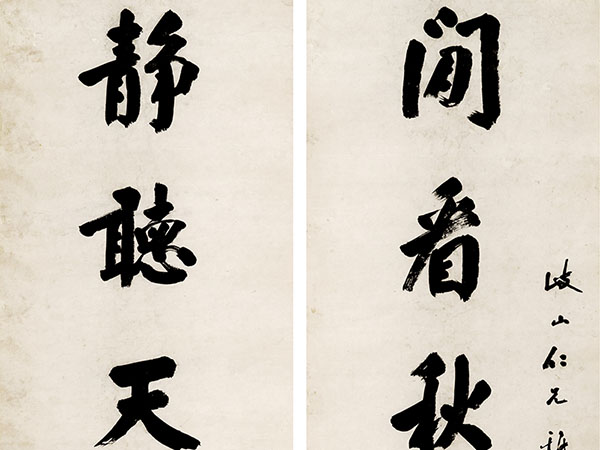 岐山仁兄
閒看秋
靜聽天